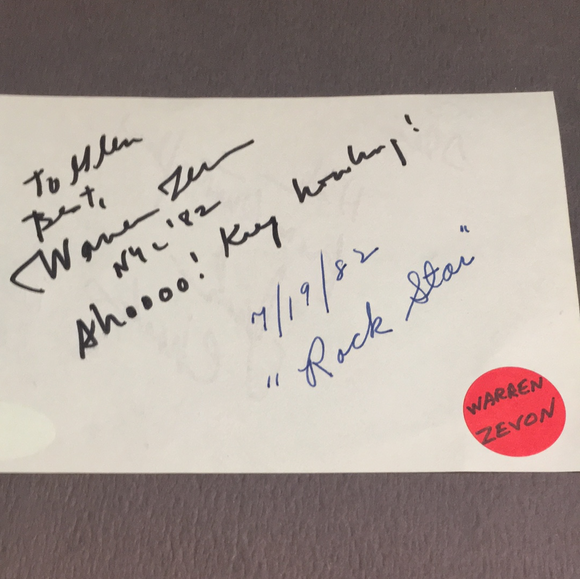 To Glen
Best,
Warren Zevon
NYC '82
Ahoooo! Keep howling!
7/19/82
"Rock Star"
WARREN
ZEVON